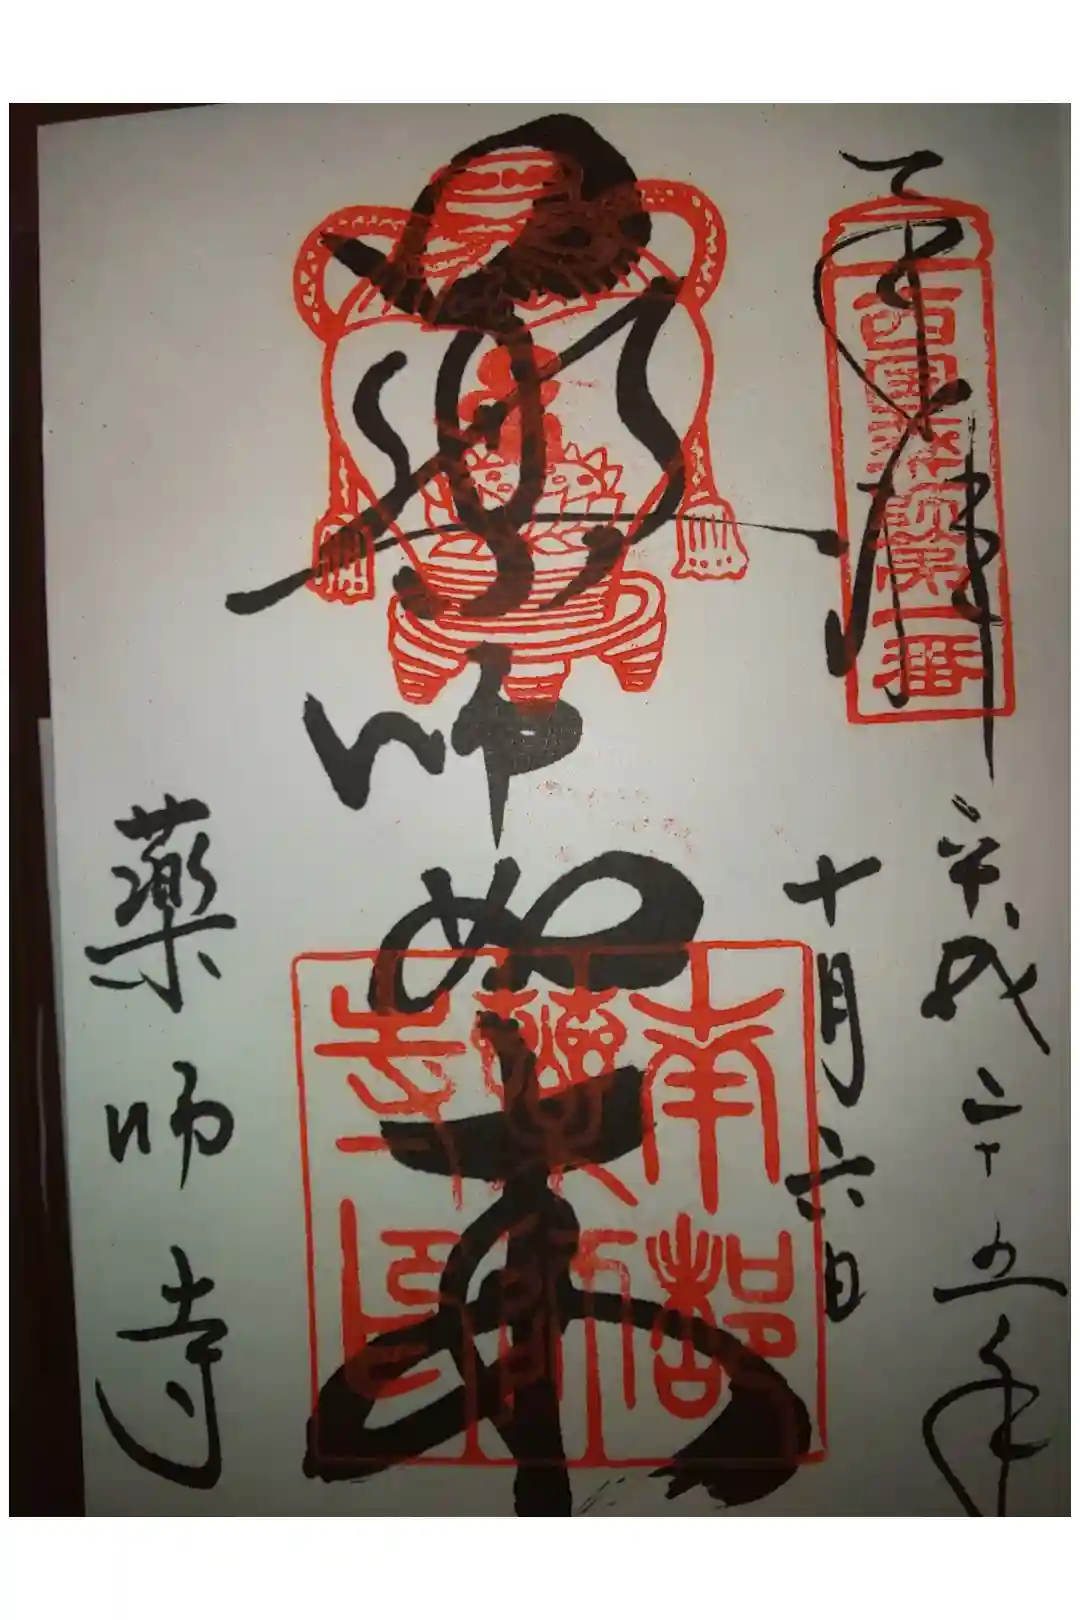 奉拝
西國薬師第一番
平成二十五年
十月六日
薬師如来
南都
藥師
寺印
藥師寺